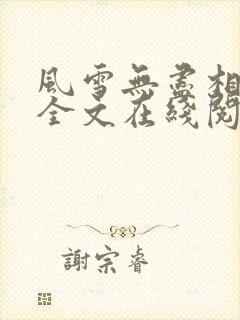 風雪無盡相
全文在綫閱
謝宗睿